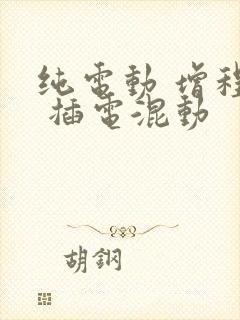 纯電動 增程
插電混動
胡鋼